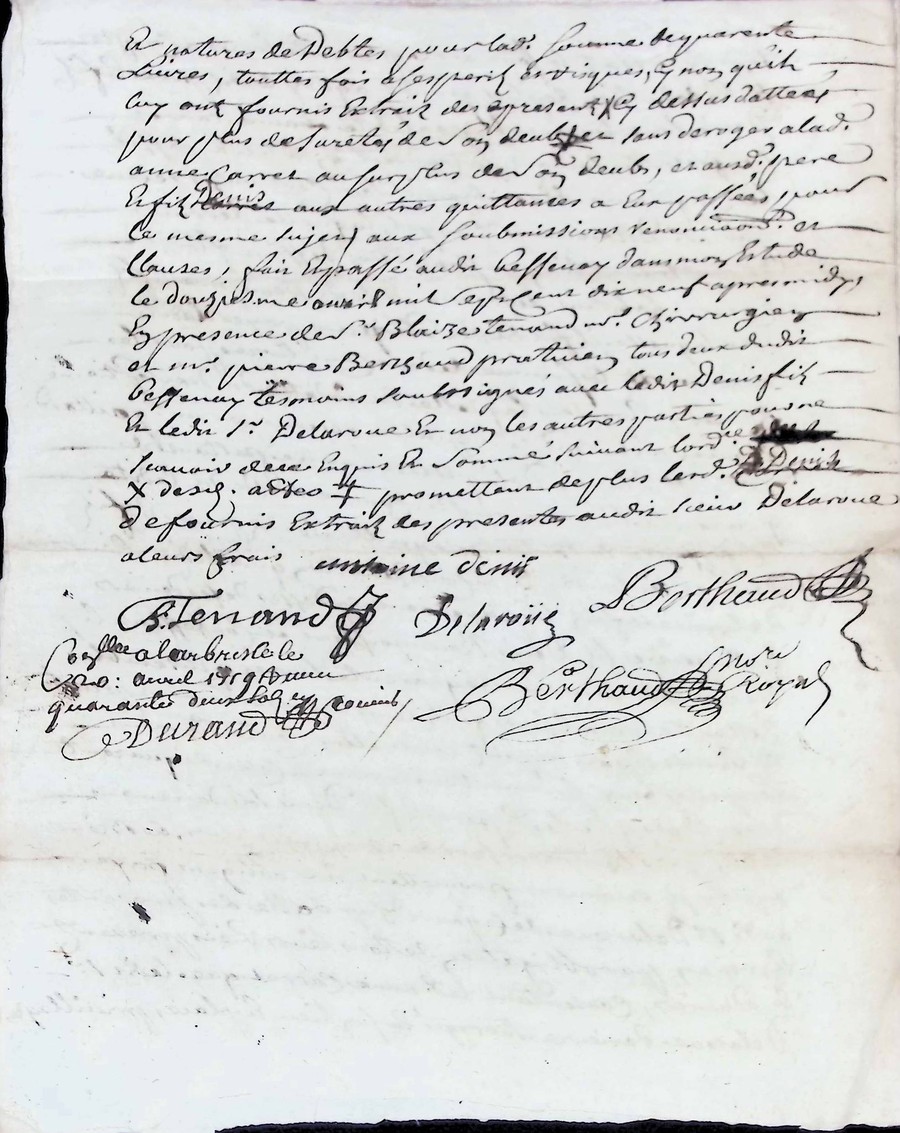 Et natures de Debtes pour lad. somme de quarente
Livres, touttes fois a ses perils et risques, Ey non qu'ils
luy ont fournis Extrait des presentes Cy dessus dattées
pour plus de suretés de son deub et sans deroger a lad.
anne Carret au surplus de son deubs, et ausd. pere
Et fils Denis aux autres quittances a Eux passées pour
Ce mesme sujet aux soubmissions renonciaons. et
Clauses, fait Et passé audit Bessenay dans mon Estude
le douziesme avril mil sept cent dix neuf apres midy,
En presence de sr. Blaize tenand mr. Chirurgien
et mr. pierre Berthaud praticien tous deux dudit
Bessenay tesmoins soubssignés avec ledit Denis fils
Et ledit sr. Delaroue Et non les autres parties pour ne
scavoir de ce Enquis Et sommé suivant lord.
promettent de plus lesd. Denis
de fournis Extrait des presentes audit sieur Delaroue
a leurs frais
antoine denis
B. Tenand Delaroüe Berthaud
Conllee a larbresle le
20: avril 1719
quarante deux sols
Durand
Berthaud nore
Royal